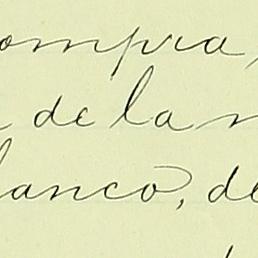 ompra,
de la
lanco, de